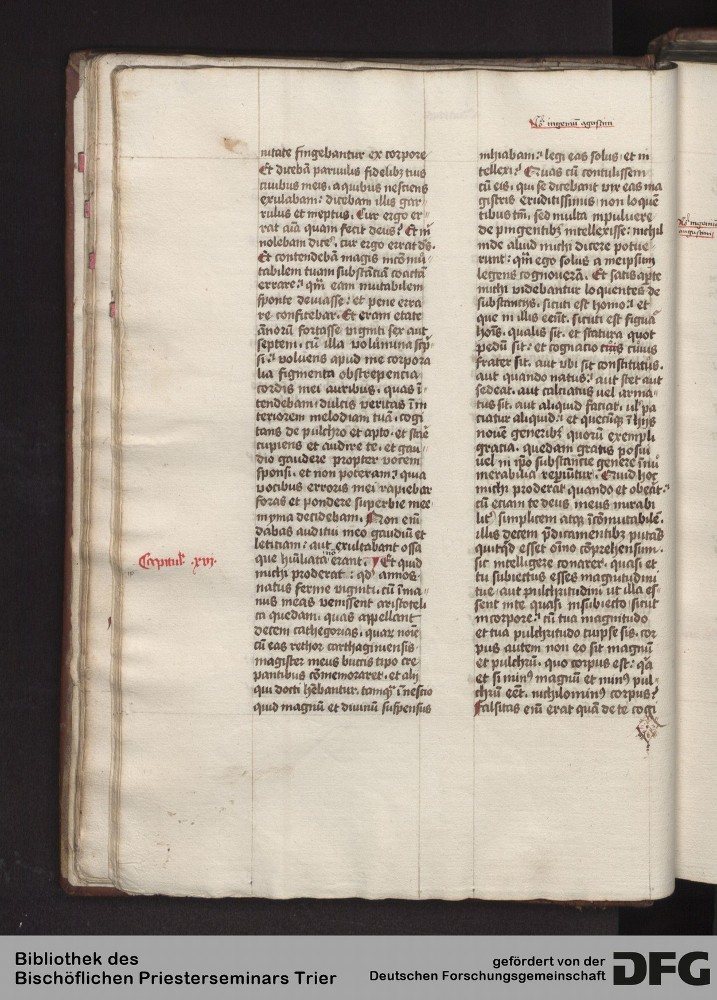 Nᵃ ingeniū agustini
nitate fingebantur ex corpore
Et dicebā paruulis fidelibꝫ tuis
ciuibus meis. a quibus nesciens
exulabam: dicebam illis gar
rulus et ineptus. Cur ergo er
rat aīa quam fecit deus? Et m̄
nolebam dicē. cur ergo errat dˢ.
Et contendebā magis incōmu
tabilem tuam substāciā coactā
errare: qm̄ eam mutabilem
sponte deuiasse: et pene erra
re confitebar. Et eram etate
annorū fortasse viginti sex aut
septem. cū illa volumina scp̄
si: voluens apud me corpora
lia figmenta obstrepencia
cordis mei auribus. quas ī
tendebam dulcis veritas ī in
teriorem melodiam tuā. cogi
tans de pulchro et apto. et stare
cupiens et audire te. et gau
dio gaudere propter vocem
sponsi. et non poteram: quia
vocibus erroris mei rapiebar
foras et pondere superbie mee
in yma decidebam. Non enī
dabas auditui meo gaudiū et
leticiam: aut exultabant ossa
que hūiliata nō erant. Et quid
Capitulū .xvi.
michi proderat: qd̄ annos
natus ferme viginti. cū ī ma
nus meas venissent aristoteli
ca quedam. quas appellant
decem cathegorias. quarū noīe
cū eas rethor carthaginensis
magister meus buccis tipo cre
pantibus cōmemoraret. et alij
qui docti hēbantur. tamqꝫ ī nescio
quid magnū et diuinū suspensus
inhiabam: legi eas solus. et in
tellexi? Quas cū contulissem
cū eis. qui se dicebant vix eas ma
gistris eruditissimis non loquē
tibus tm̄. sed multa in puluere
de pingentibꝫ intellexisse: nichil
inde aliud michi dicere potue
runt: qm̄ ego solus a meipsum
legens cognouerā. Et satis apte
michi videbantur loquentes de
substancijs. sicuti est homo: et
que in illis eēnt. sicuti est figura
hoīs. qualis sit. et statura quot
pedū sit: et cognacio cuius
frater sit. aut vbi sit constitutus.
aut quando natus: aut stet aut
sedeat. aut calciatus uel arma
tus sit. aut aliquid faciat. ul̓ pa
ciatur aliquid: et quecūqꝫ ī hijs
nouē generibꝫ quorū exempli
gracia. quedam gratis posui
uel in ip̄o substancie genere īnu
merabilia repiuntur. Quid hoc
michi proderat quando et oberat:
cū etiam te deus meus mirabi
litˀ simplicem atqꝫ īcōmutabilē.
illis decem p̄dicamentibꝫ putās
quitqd̄ esset oīno cōprehensum.
sic intelligere conarer. quasi et
tu subiectus esses magnitudini
tue. aut pulchritudini. ut illa es
sent in te quasi in subiecto sicut
in corpore: cū tua magnitudo
et tua pulchritudo tu ipse sis. cor
pus autem non eo sit magnū
et pulchrū. quo corpus est: qꝛ
et si minꝰ magnū et minꝰ pul
chrū eēt. nichilominꝰ corpus?
Falsitas enī erat quā de te cogi
Bibliothek des
Bischöflichen Priesterseminars Trier
gefördert von der
Deutschen Forschungsgemeinschaft
DFG